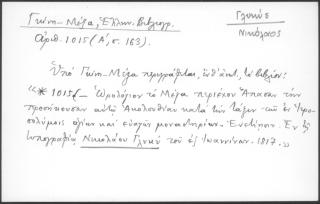 Γκίνη - Μέξα, Ἑλλην. Βιβλιογρ.
Γλυκύς
Νικόλαος
ἀριθ. 1015 (Α', σ. 163).
Ὑπὸ Γκίνη - Μέξα περιγράφεται, ὑπ' ἀριθ., τὸ βιβλίον:
«*1015/- Ὡρολόγιον τὸ Μέγα περιέχον Ἅπασαν τὴν
προσήκουσαν αὐτῷ Ἀκολουθίαν κατὰ τὴν τάξιν τῶν ἐν Ἱερο-
σολύμοις ἁγίων καὶ εὐαγῶν μοναστηρίων. Ἐνετίησιν. Ἐν τῇ
τυπογραφίᾳ Νικολάου Γλυκύ τοῦ ἐξ Ἰωαννίνων. 1817.»